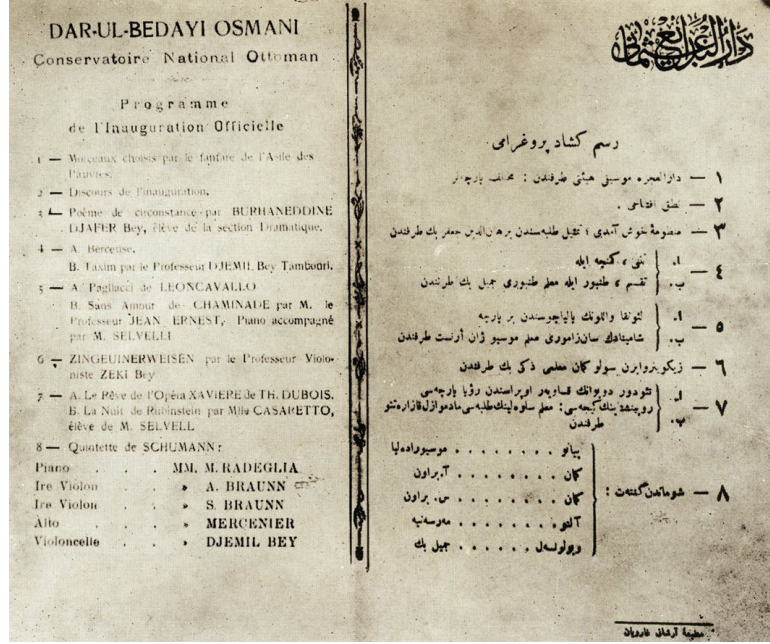 DAR-UL-BEDAYI OSMANI
Conservatoire National Ottoman
Programme
de l'Inauguration Officielle
1 — Morceaux choisis par le fanfare de l'Asile des
Pauvres.
2 — Discours de l'inauguration.
3 — Poème de circonstance par BURHANEDDINE
DJAFER Bey, élève de la section Dramatique.
4 — A. Berceuse.
B. Taxim par le Professeur DJEMIL Bey Tambouri.
5 — A. Pagliacci de LEONCAVALLO
B. Sans Amour de CHAMINADE par M. le
Professeur JEAN ERNEST, Piano accompagné
par M. SELVELLI
6 — ZINGEUINERWEISEN par le Professeur Violo-
niste ZEKI Bey
7 — A. Le Rêve de l'Opéra XAVIERE de TH. DUBOIS.
B. La Nuit de Rubinstein par Mlle CASARETTO,
élève de M. SELVELL
8 — Quintette de SCHUMANN :
Piano . . . MM. M. RADEGLIA
Ire Violon . . » A. BRAUNN
Ire Violon . . » S. BRAUNN
Alto . . » MERCENIER
Violoncelle . . » DJEMIL BEY
دار البدایع عثمانی
رسم كشاد پروغرامی
١ — دارالعجزه موسیقی هیئتی طرفندن : مختلف پارچه‌لر
٢ — نطق افتتاحی .
٣ — منظومهٔ خوش آمدی ؛ تمثیل طلبه‌سندن برهان‌الدین جعفر بك طرفندن
٤ — ا. ننی ، كمنچه ایله
ب. تقسیم ، طنبور ایله معلم طنبوری جمیل بك طرفندن
٥ — ا. لئونقاواللونك پالیاچوسندن بر پارچه
ب. شامینادك سان‌زاموری معلم موسیو ژان أرنست طرفندن
٦ — زیكوینروایزن سولو كمان معلمی ذكی بك طرفندن
٧ — ا. تئودور دوبوانك قساویه‌ر اوپراسندن رؤیا پارچه‌سی
ب. روبینشتاینك گیجه‌سی : معلم سلوه‌لینك طلبه‌سی مادموازل قازاره‌تتو
طرفندن
٨ — شوماندن كنتت :
پیانو . . . . . . . موسیوراده‌لیا
كمان . . . . . . . آ. براون
كمان . . . . . . . س. براون
آلتو . . . . . . . مه‌رسه‌نیه
ویولونسل . . . . . . جمیل بك
مطبعهٔ آرشاق غارویان